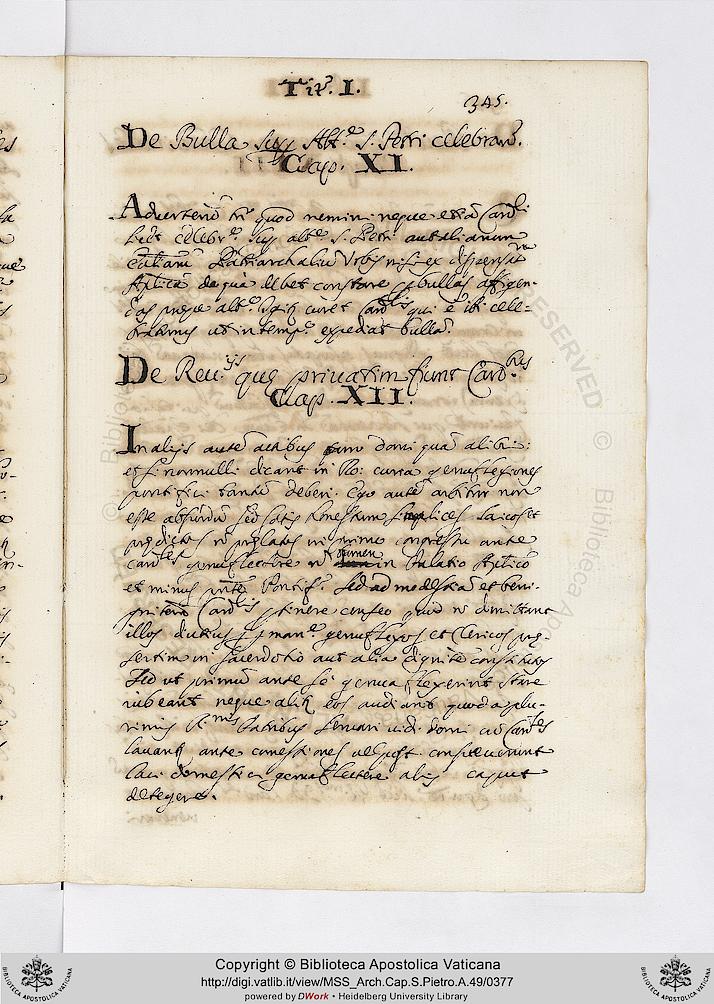 Tit. I.
345.
De Bulla sup Alt.e S. Petri celebran.
Cap. XI.
Advertend tn quod nemini neque etiā Card.li
licet celebr.e sup alt.e S. Petri aut alianum
Patriarchaliū Urbis nisi ex dispensat.ne
Aplica de qua debet constare p bullas affigen-
das prope alt.e curet Card.lis qui ē ibi cele-
braturus ut in temp.e expediat bulla.
De Reu.ijs que privatim fiunt Card.bus
Cap. XII.
In alijs autē actibus domi quā alibi:
et si nonnulli dicant in Ro: curia genuflexiones
pontifici tantū deberi. Ego autē arbitror non
esse absurdū sed satis honestum simplices laicos et
predictos nō prelatos in primo congressu ante
Card.les genuflectere nō tamen in Palatio Aplico
et minus ante Pontif.e sed ad modestiā et beni-
gnitatē Card.lis ptinere censeo quod nō dimittant
illos diutius p man.e genuflexos et Clericos pre-
sertim in sacerdotio aut alia dignitē constitutos
sed ut primum ante se genua flexerint stare
iubeant neque aliq eos audiant quod a plu-
rimis R.mis Patribus servari vidi domi cū Card.les
lavant ante comestiones vel post consueverunt
laici domestici genuflectere alij caput
detegere.
Copyright © Biblioteca Apostolica Vaticana
http://digi.vatlib.it/view/MSS_Arch.Cap.S.Pietro.A.49/0377
powered by DWork • Heidelberg University Library